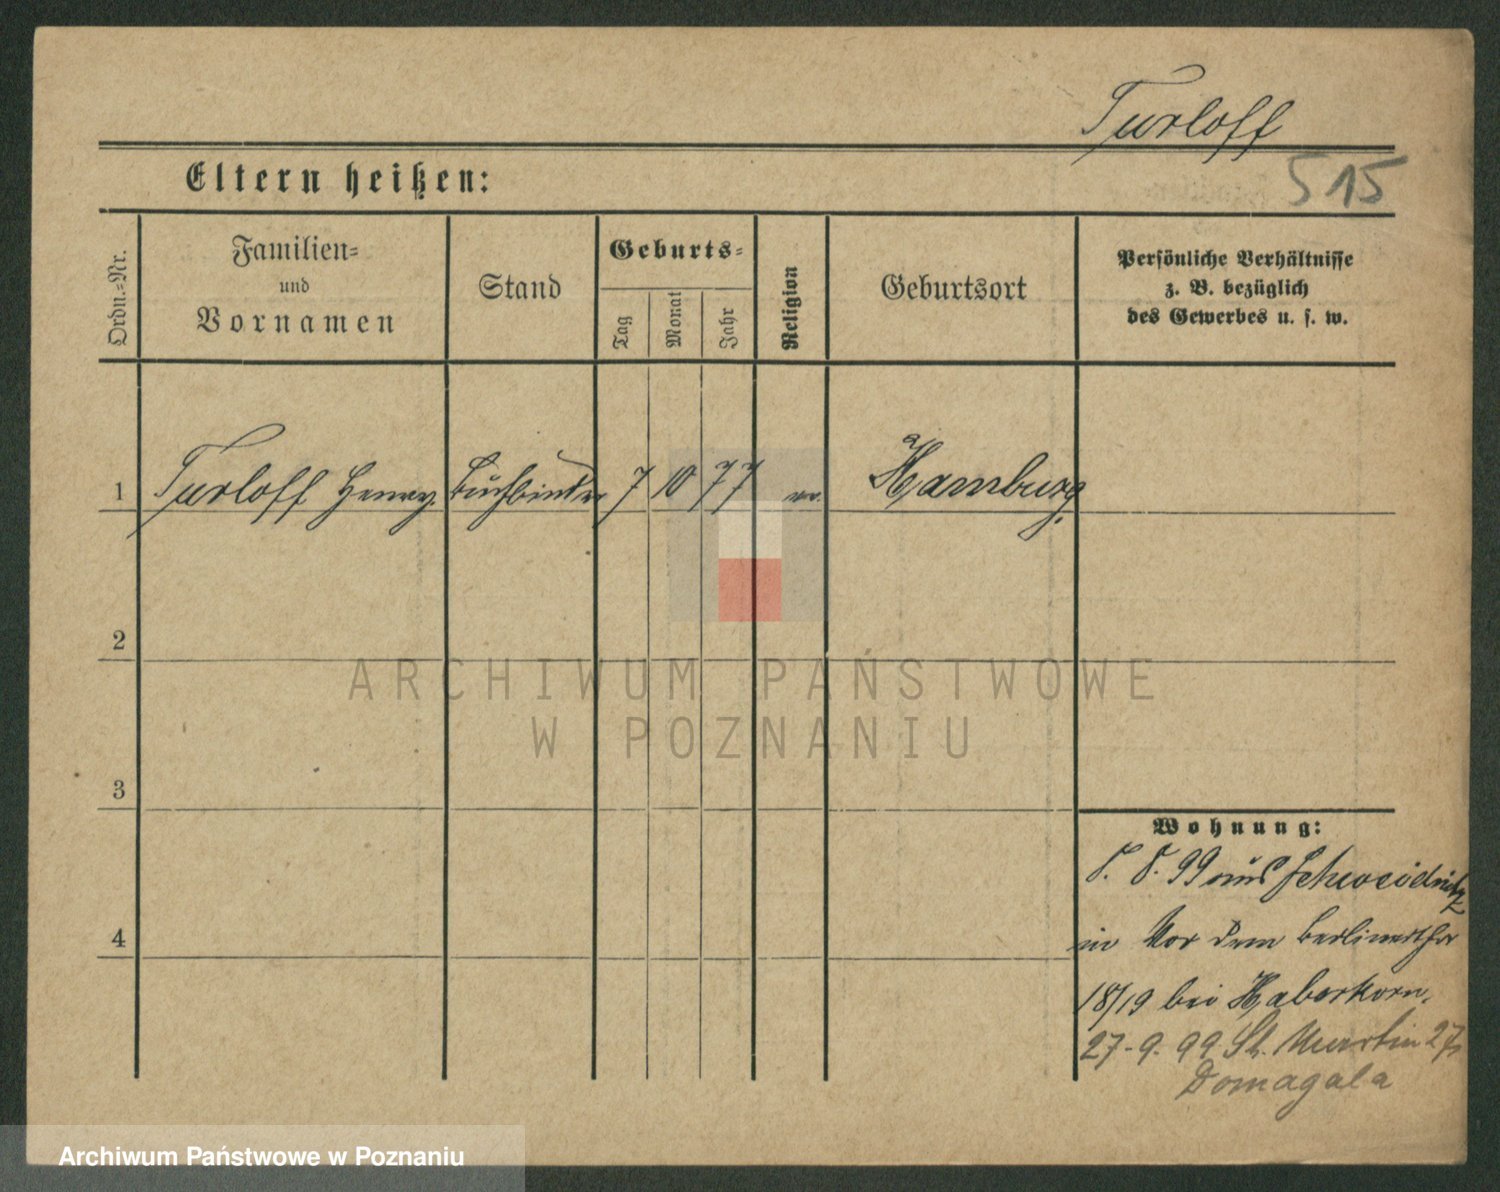 Turloff
515
Eltern heißen:
Ordn.=Nr.
Familien=
und
Vornamen
Stand
Geburts=
Tag
Monat
Jahr
Religion
Geburtsort
Persönliche Verhältnisse
z. B. bezüglich
des Gewerbes u. s. w.
1 Turloff Henry. Buchbinder 7 10 77 ev. Hamburg.
2
3
4
ARCHIWUM PAŃSTWOWE
W POZNANIU
Wohnung:
99 aus Schweidnitz
in Vor dem Berlinerthor
18/19 bei Haberkorn.
27-9. 99 St. Martin 27
Domagala
Archiwum Państwowe w Poznaniu